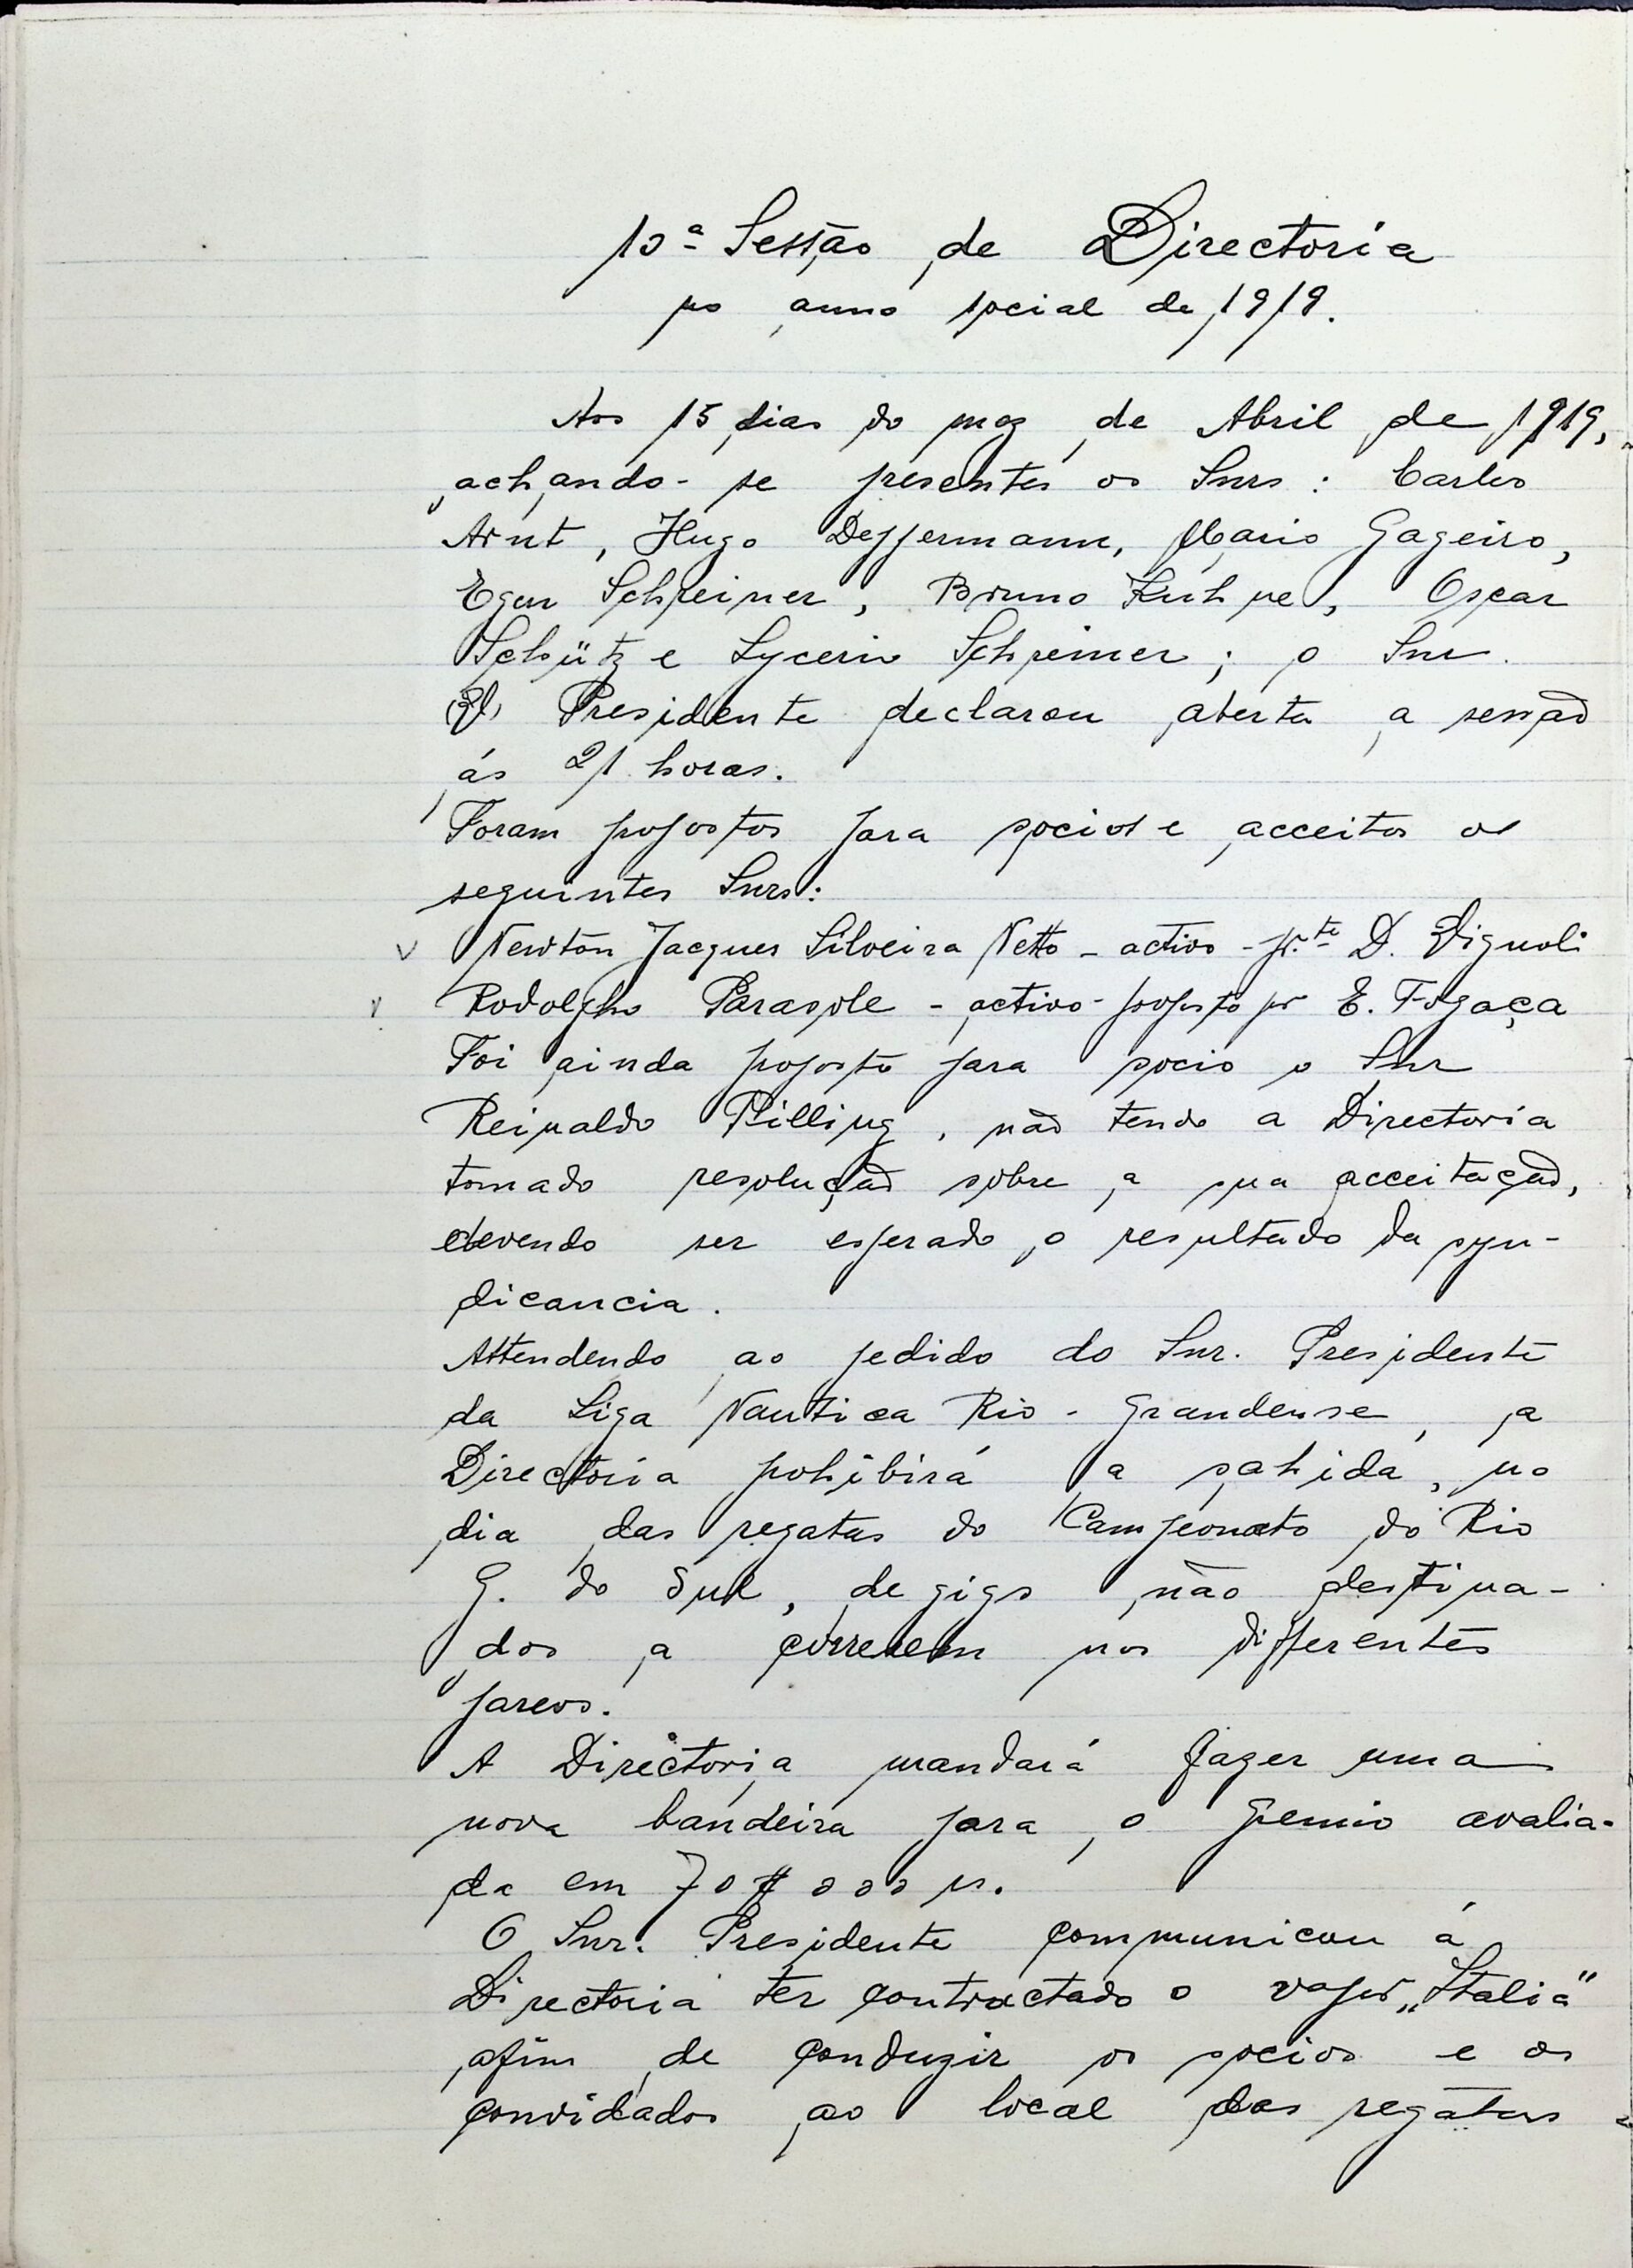 10ª Sessão de Directoria
no anno social de 1919.
Aos 15 dias do mez de Abril de 1919,
achando-se presentes os Snrs: Carlos
Arnt, Hugo Deppermann, Mario Gageiro,
Egon Schreiner, Bruno Kuhne, Oscar
Schütz e Lycerio Schreiner; o Snr.
Presidente declarou aberta a sessão
ás 21 horas.
Foram propostos para socios e acceitos os
seguintes Snrs:
Newton Jacques Silveira Netto - activo - pr.te D. Vignoli
Rodolpho Parasole - activo - proposto pr E. Fogaça
Foi ainda proposto para socio o Snr
Reinaldo Billing, não tendo a Directoria
tomado resolução sobre a sua acceitação,
devendo ser esperado o resultado da syn-
dicancia.
Attendendo ao pedido do Snr. Presidente
da Liga Nautica Rio-Grandense, a
Directoria prohibirá a sahida, no
dia das regatas do Campeonato do Rio
G. do Sul, de gigs não destina-
dos a correrem nos differentes
pareos.
A Directoria mandará fazer uma
nova bandeira para o Gremio avalia-
da em 70$000 rs.
O Snr. Presidente communicou á
Directoria ter contractado o vapor „Italia"
afim de conduzir os socios e os
convidados ao local das regatas